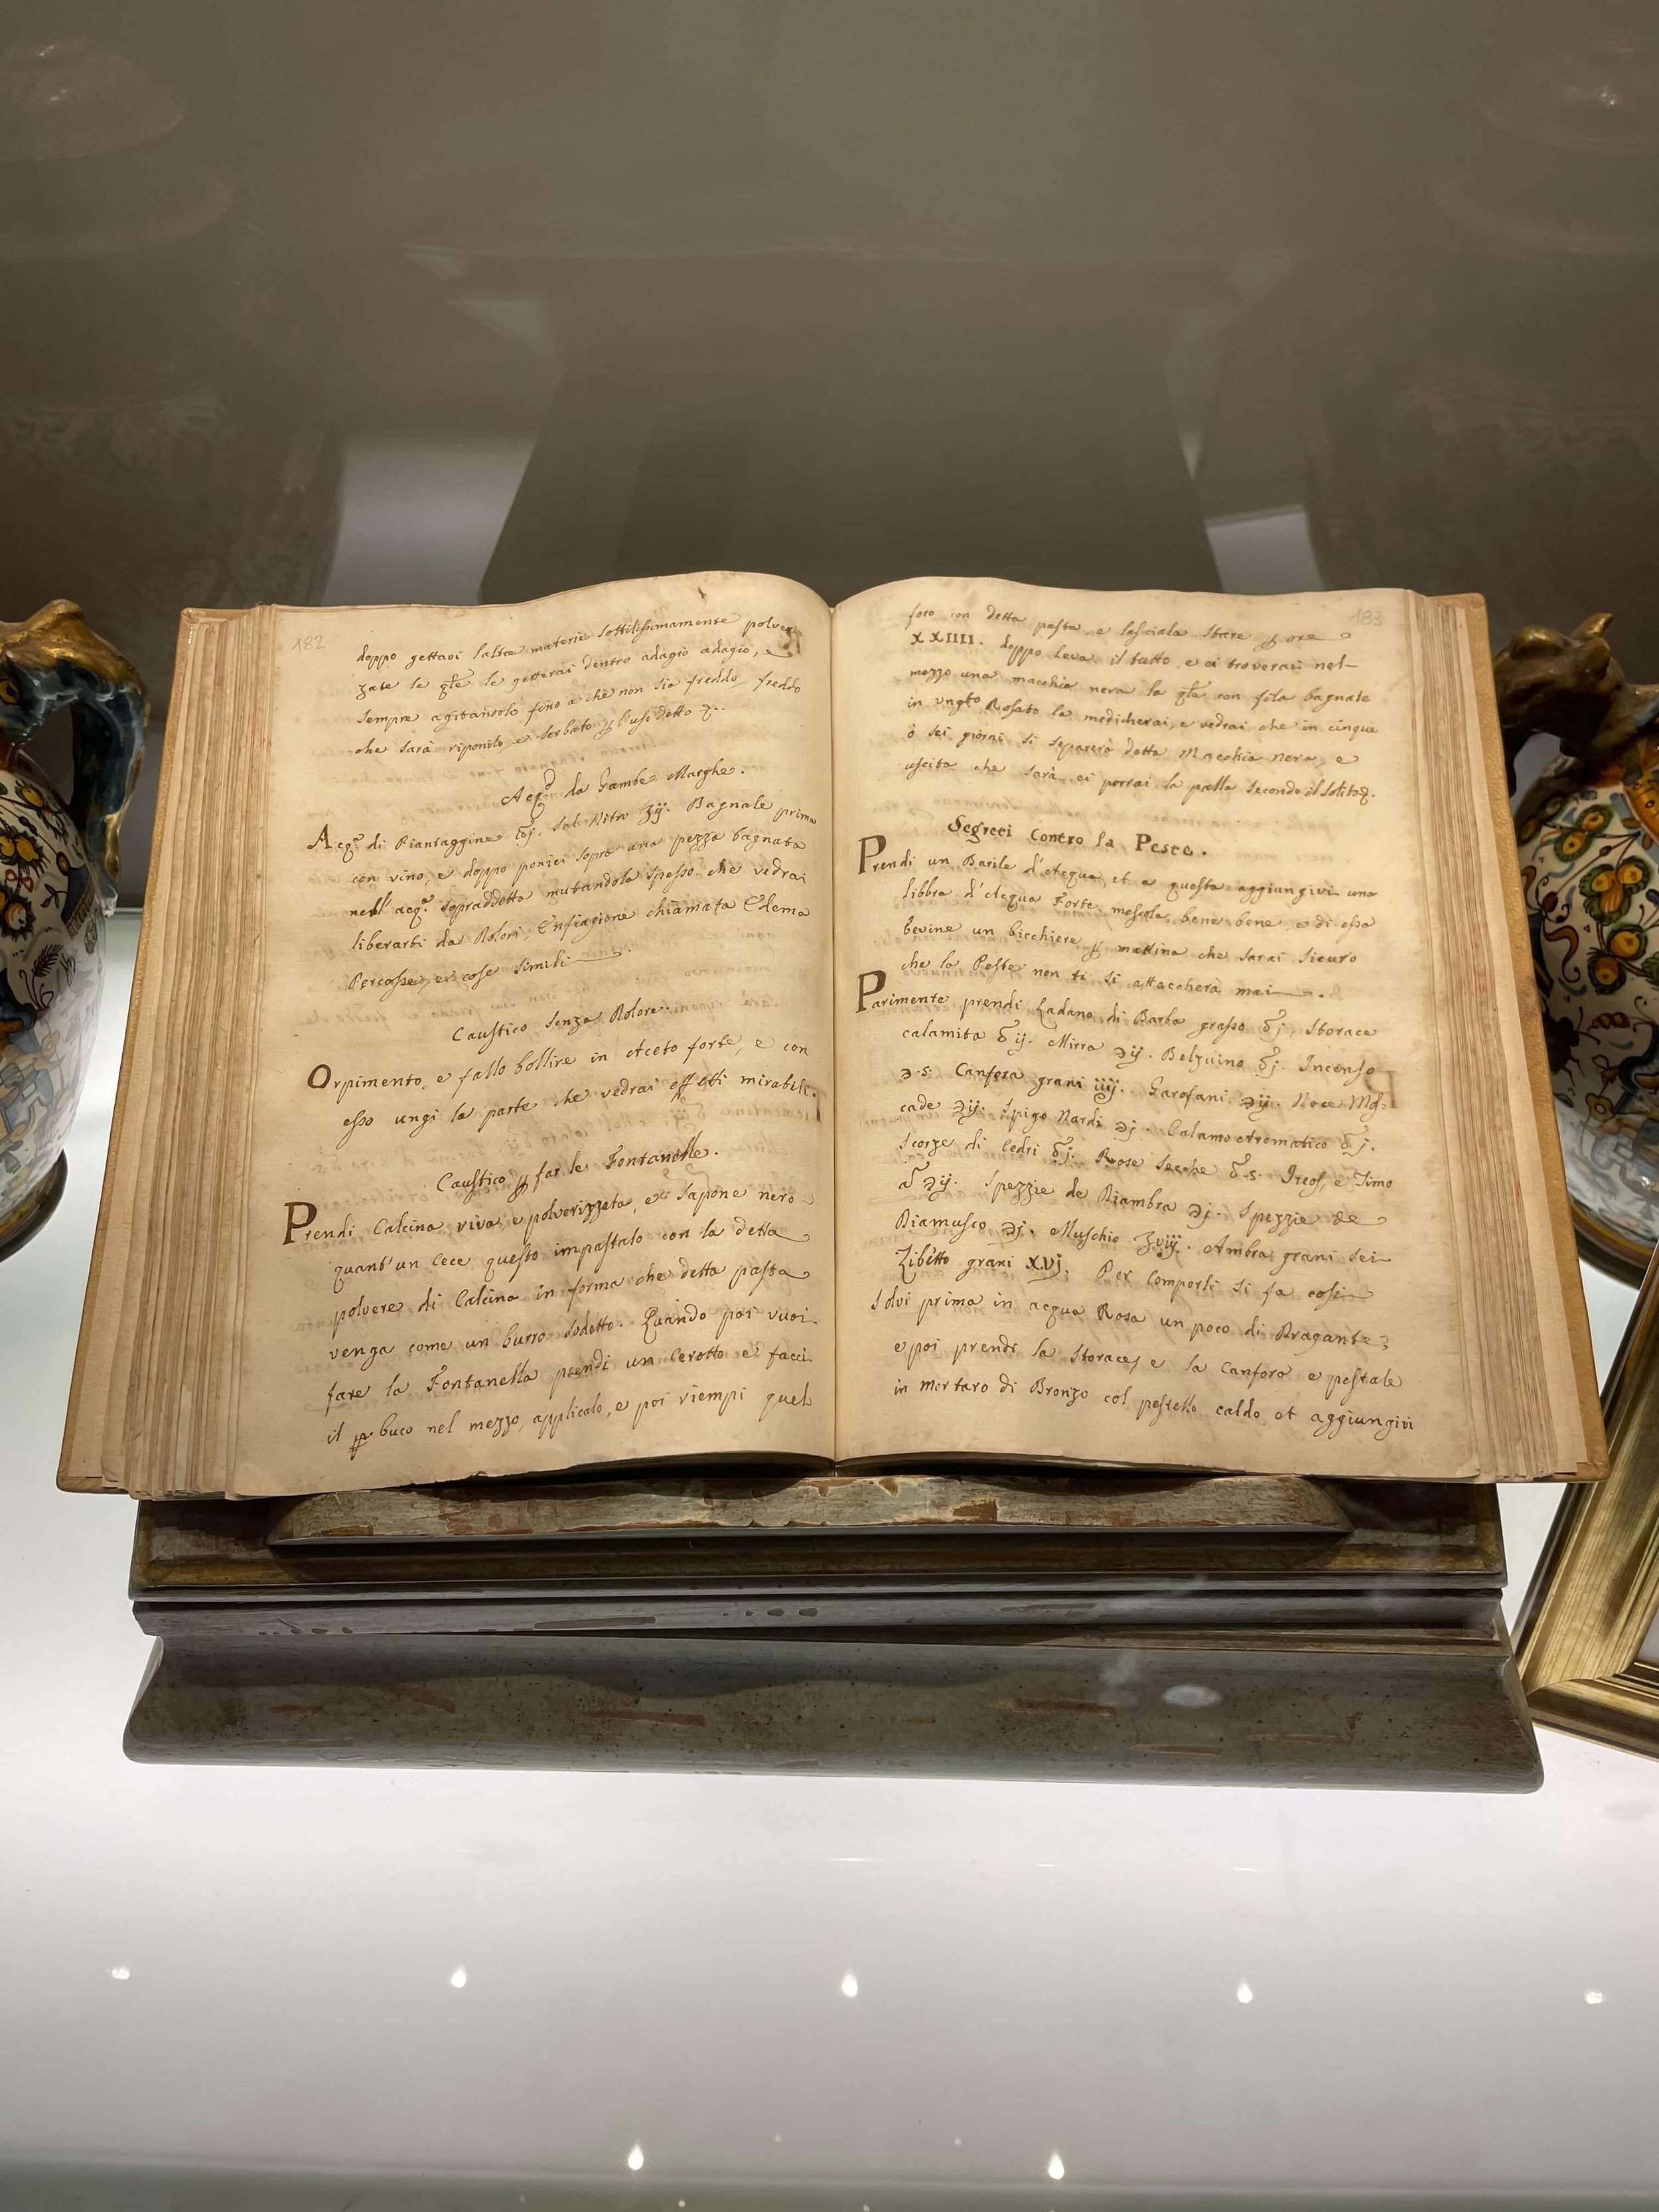 182
doppo gettavi l'altre materie sottilissimamente polveri
zate le qle le getterai dentro adagio adagio, e
sempre agitandolo fino a che non sia freddo, freddo
che sarà riposito, e serbato p l'uso detto
Acqa da Gambe Marghe.
Acqa di Piantaggine ℔j. Sal Nitro ʒij. Bagnale prima
con vino, e doppo ponici sopra una pezza bagnata
nell' acqa sopraddetta mutandola spesso che vedrai
liberarti da Dolori, Enfiagione chiamata Edema
Percosse, et cose simili.
Caustico senza Dolore.
Orpimento, e fallo bollire in Aceto forte, e con
esso ungi la parte che vedrai effetti mirabili.
Caustico p far le Fontanelle.
Prendi Calcina viva, e polverizzata, et Sapone nero
quant'un Cece questo impastalo con la detta
polvere di Calcina in forma che detta pasta
venga come un burro sodetto. Quando poi vuoi
fare la Fontanella prendi un Cerotto e facci
il buco nel mezzo, applicalo, e poi riempi quel
183
foro con detta pasta, e lasciala stare p ore
XXIIII. doppo leva il tutto, e ci troverai nel
mezzo una macchia nera la qle con fila bagnate
in ungto Rosato la medicherai, e vedrai che in cinque
ò sei giorni si separerà detta Macchia nera, e
uscita che sarà, ci porrai la palla secondo il solito
Segreti Contro la Peste.
Prendi un Barile d'Acqua, et a questa aggiungivi una
libbra d'Acqua Forte mescola bene bene, e di essa
bevine un bicchiere p mattina che sarai sicuro
che la Peste non ti si attaccherà mai.
Parimente prendi Ladano di Barba grasso ℥j, Storace
calamita ℥ij. Mirra ℈ij. Belzuino ℥j. Incenso
℈.s. Canfora grani iiij. Garofani ℈ij. Noce Mos=
cade ℈ij. Spigo Nardi ℈j. Calamo Aromatico ℥j.
Scorze di Cedri ℥j. Rose secche ℥.s. Ireos, e Timo
a ℈ij. Spezzie de Diambra ℈j. Spezzie de
Diamusco ℈j. Muschio ʒviij. Ambra grani sei
Zibetto grani xvj. Per Comporli si fa così
Solvi prima in acqua Rosa un poco di Dragante
e poi prendi la Storace, e la Canfora e pestale
in mortaro di Bronzo col pestello caldo, et aggiungivi